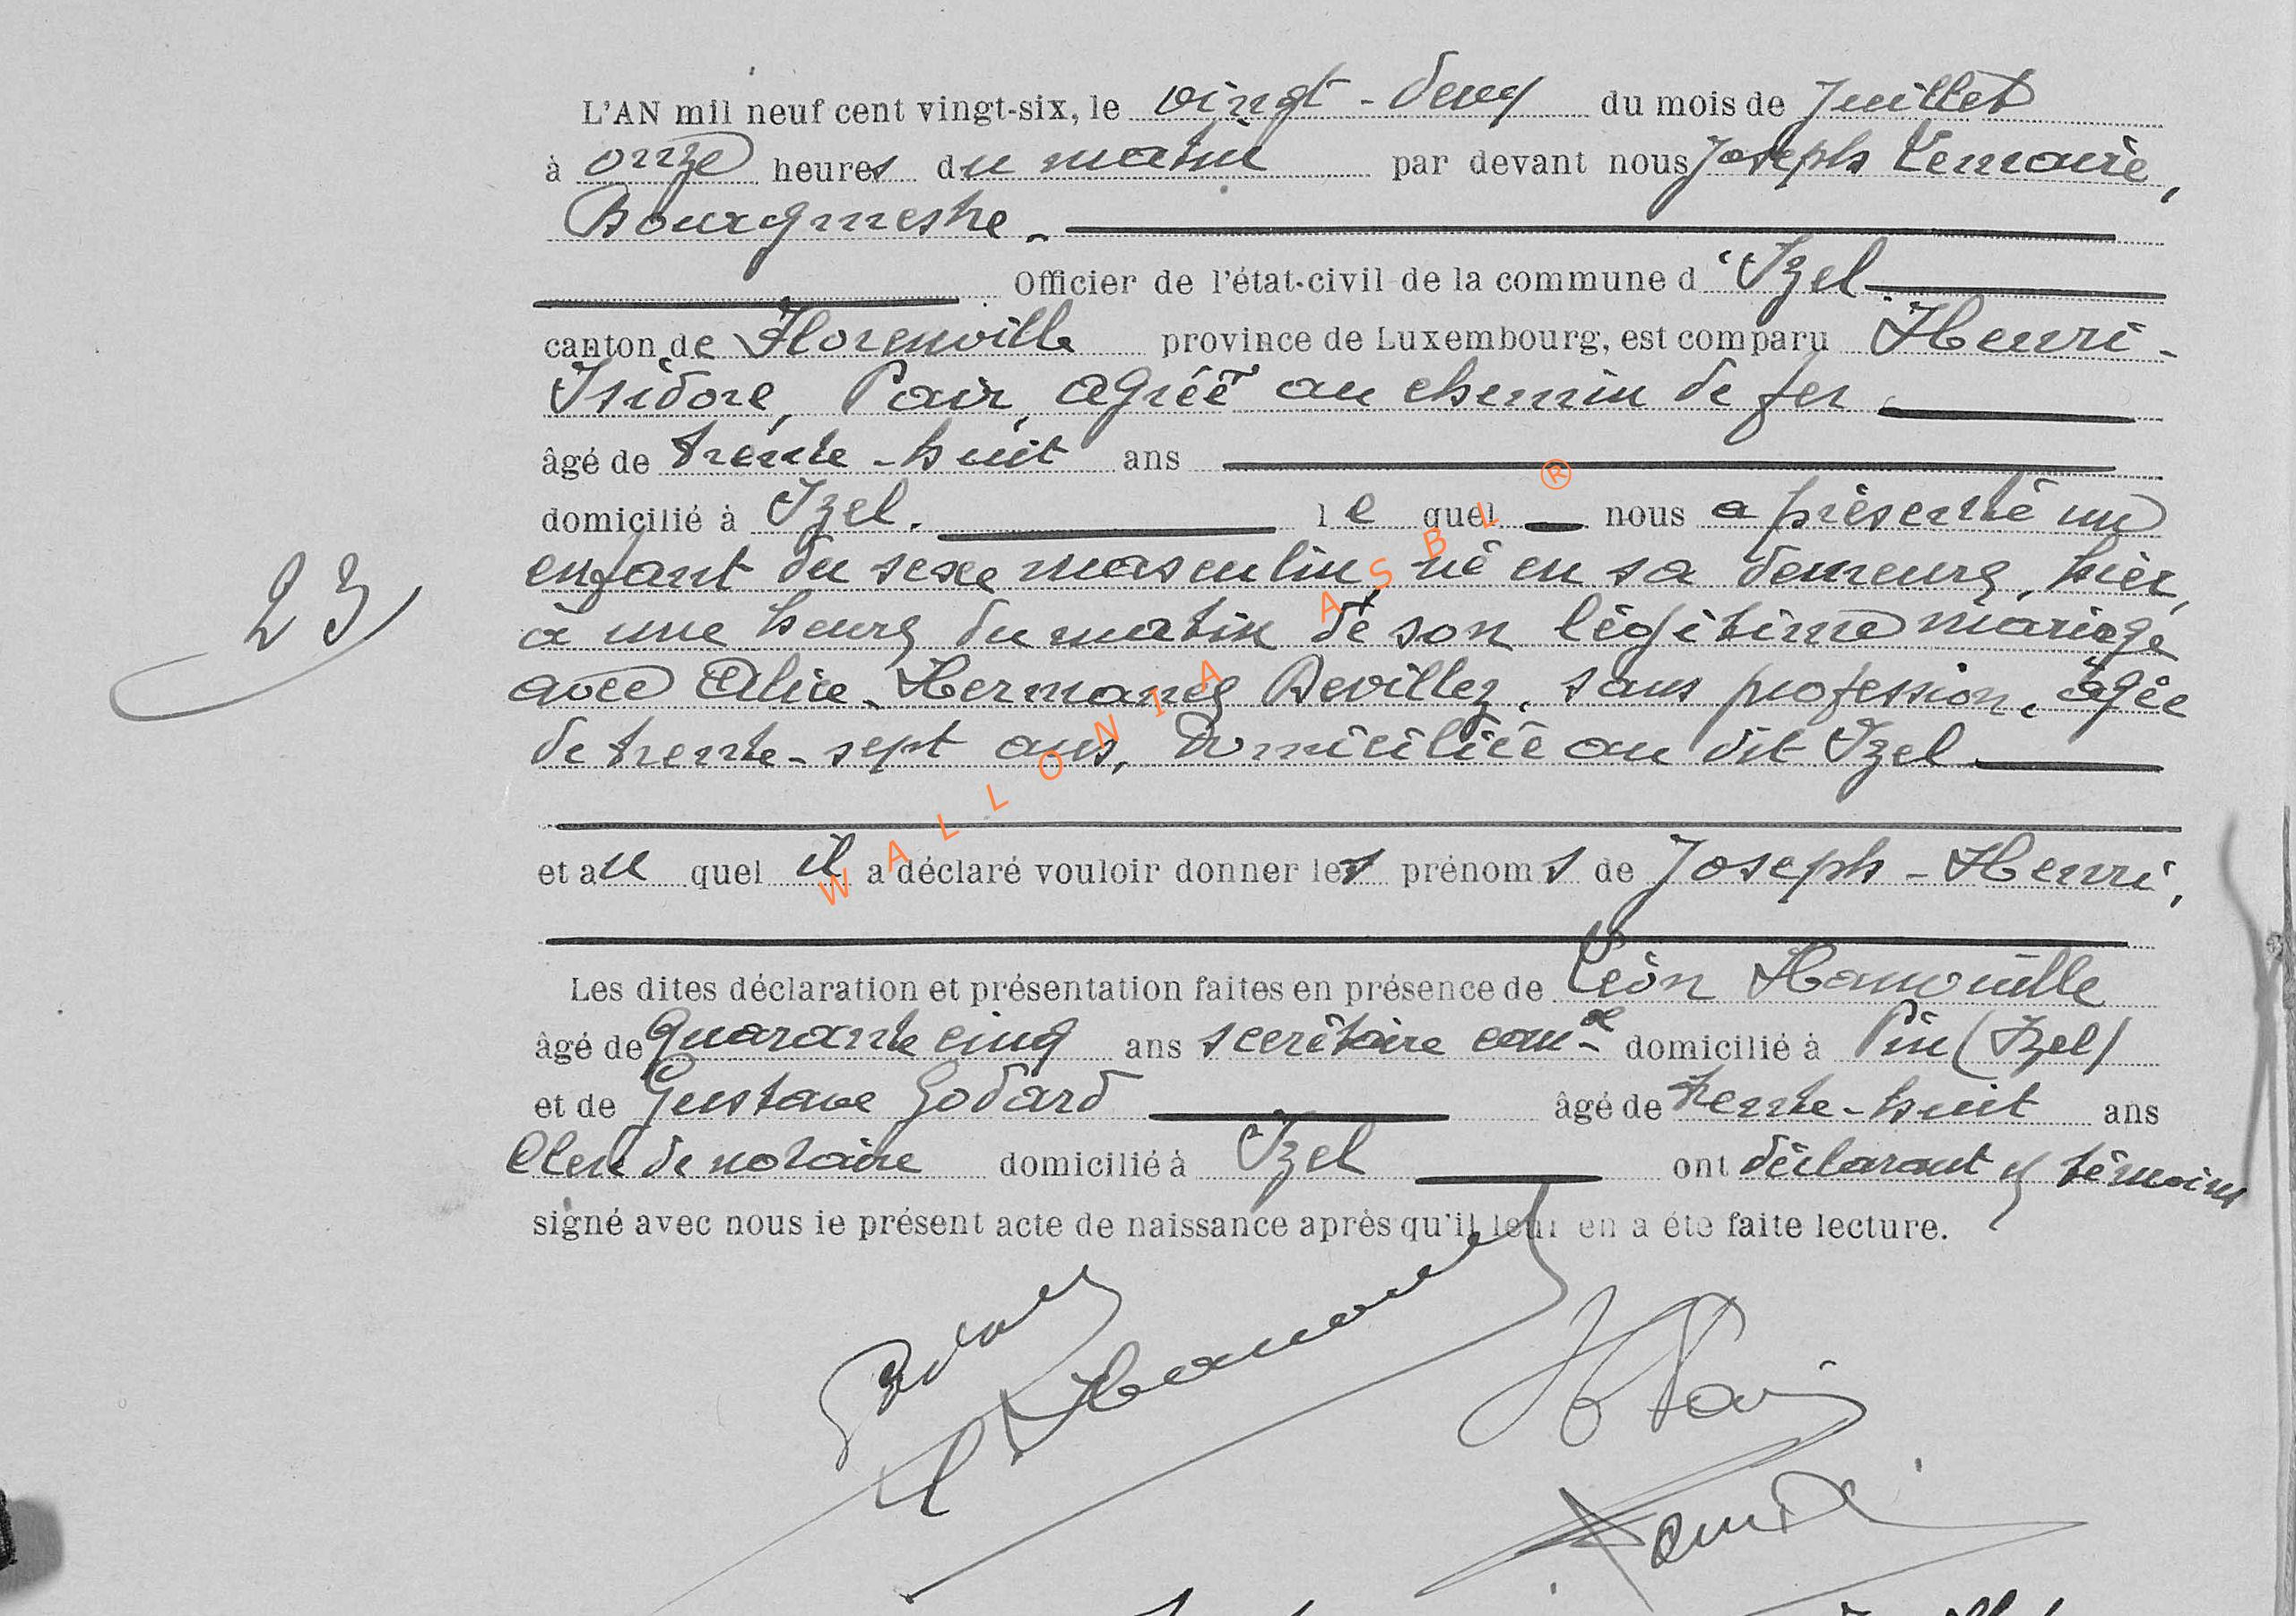 L'AN mil neuf cent vingt-six, le vingt-deux du mois de Juillet
à onze heures du matin par devant nous Joseph Lemaire,
Bourgmestre
Officier de l'état-civil de la commune d'Izel
canton de Florenville province de Luxembourg, est comparu Henri-
Isidore, Pair, agréé au chemin de fer
âgé de trente-huit ans
domicilié à Izel. lequel nous a présenté un
23
enfant du sexe masculin, né en sa demeure, hier,
à une heure du matin de son légitime mariage
avec Alice-Hermance Devillez, sans profession, âgée
de trente-sept ans, domiciliée au dit Izel
et au quel il a déclaré vouloir donner les prénoms de Joseph-Henri,
Les dites déclaration et présentation faites en présence de Léon
âgé de quarante cinq ans secrétaire comal domicilié à Pin (Izel)
et de Gustave Godard âgé de trente-huit ans
Clerc de notaire domicilié à Izel ont déclarant et témoins
signé avec nous le présent acte de naissance après qu'il leur en a été faite lecture.
H Pair
WALLONIA ASBL ®